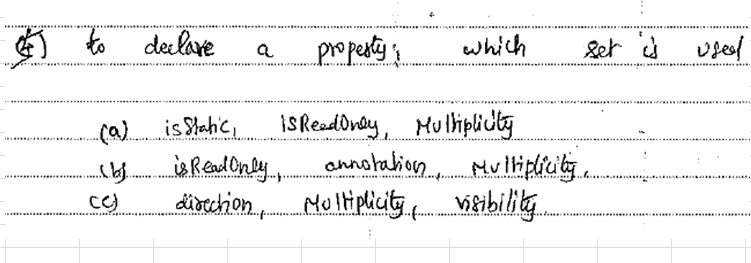 to declare a property; which set is used
(a) isStatic, isReadOnly, Multiplicity
(b) isReadOnly, annotation, Multiplicity.
(c) direction, Multiplicity, visibility.